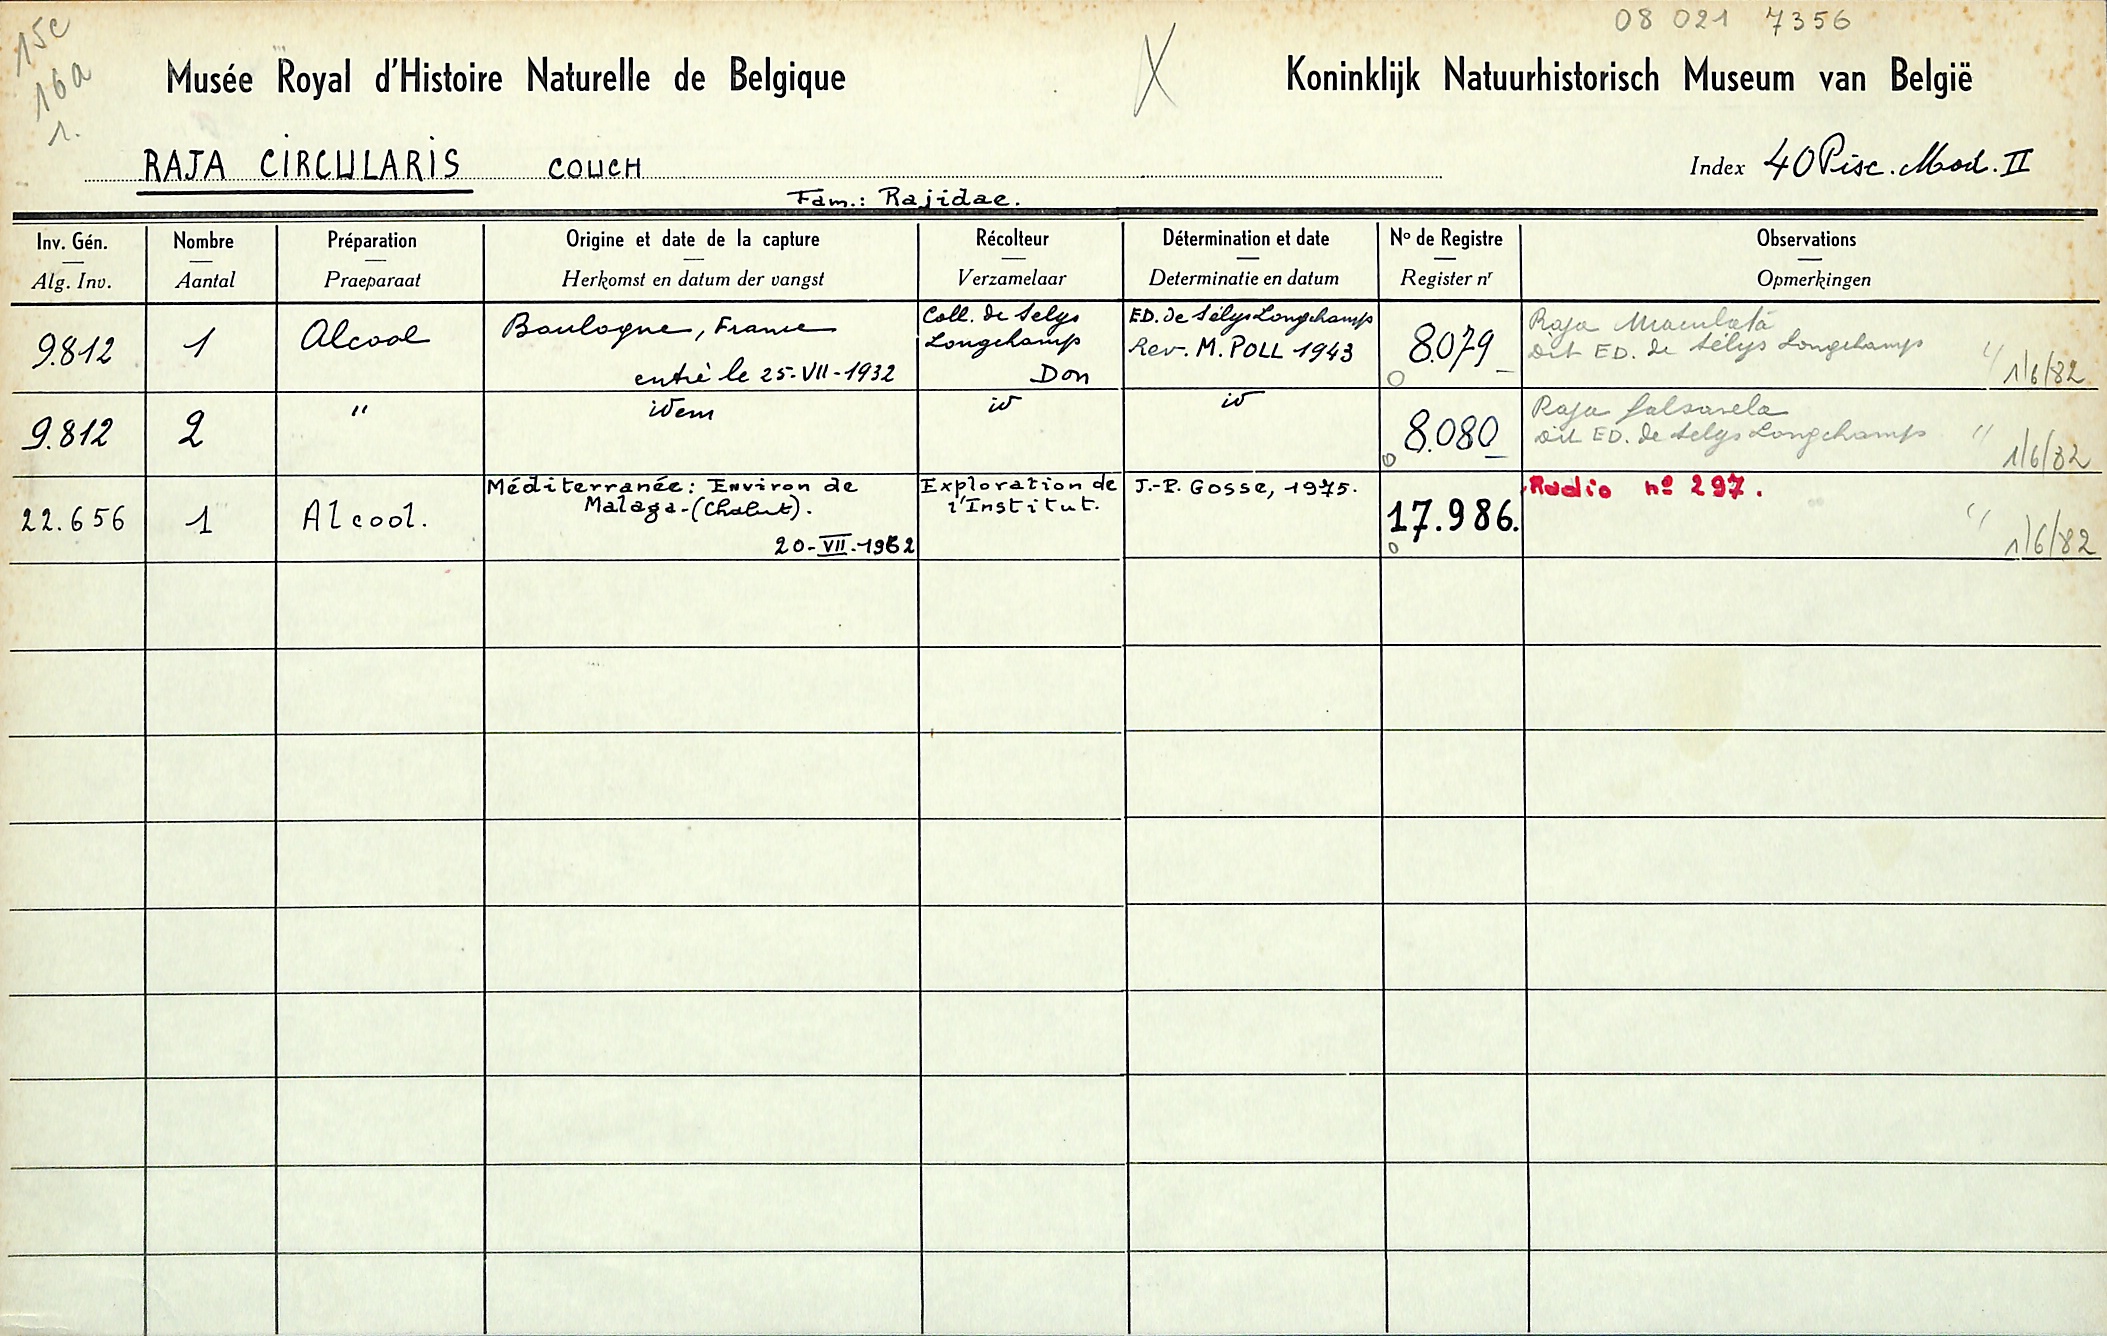 15c
16a
1.
08 021 7356
X
Musée Royal d'Histoire Naturelle de Belgique
Koninklijk Natuurhistorisch Museum van België
RAJA CIRCULARIS COUCH
Index 40 Pisc. Mod. II
Fam.: Rajidae.
Inv. Gén. Nombre Préparation Origine et date de la capture Récolteur Détermination et date No de Registre Observations
Alg. Inv. Aantal Praeparaat Herkomst en datum der vangst Verzamelaar Determinatie en datum Register nr Opmerkingen
9.812 1 Alcool Boulogne, France
entré le 25-VII-1932
Coll. de Selys
Longchamp
Don
ED. de Sélys Longchamp
Rev. M. POLL 1943
8.079
Raja Maculata
dit ED. de Sélys Longchamp
" 1/6/82
9.812 2 " idem id id 8.080
Raja falsavela
dit ED. de Selys Longchamp
" 1/6/82
22.656 1 Alcool.
Méditerranée: Environ de
Malaga-(Chalut).
20-VII-1962
Exploration de
l'Institut.
J.-P. Gosse, 1975.
17.986.
Radio no 297.
" 1/6/82